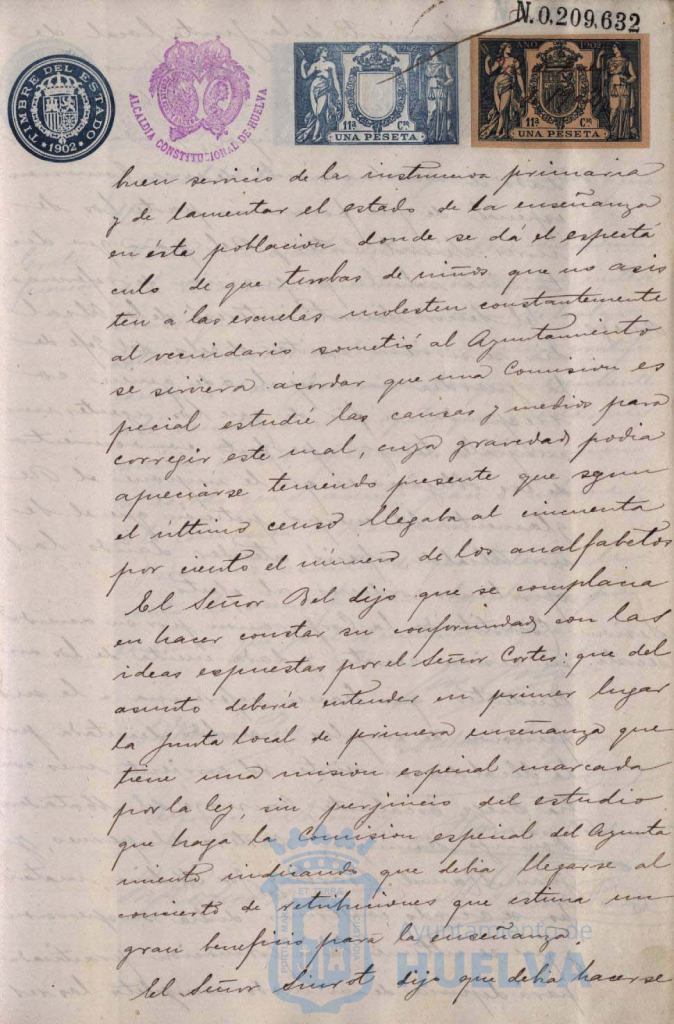 N.0,209,632
TIMBRE DEL ESTADO
1902
ALCALDIA CONSTITUCIONAL DE HUELVA
AÑO 1902
11ª Cª
UNA PESETA
AÑO 1902
11ª Cª
UNA PESETA
buen servicio de la instruccion primaria
y de lamentar el estado de la enseñanza
en ésta poblacion donde se dá el espectá
culo de que turbas de niños que no asis
ten á las escuelas molesten constantemente
al vecindario sometió al Ayuntamiento
se sirviera acordar que una Comision es
pecial estudie las causas y medios para
corregir este mal, cuya gravedad podia
apreciarse teniendo presente que segun
el último censo llegaba al cincuenta
por ciento el número de los analfabetos
El Señor Bel dijo que se complacia
en hacer constar su conformidad con las
ideas espuestas por el Señor Cortes: que del
asunto debería entender en primer lugar
la Junta local de primera enseñanza que
tiene una mision especial marcada
por la ley, sin perjuicio del estudio
que haga la Comision especial del Ayunta
miento indicando que debia llegarse al
concierto de retribuciones que estima un
gran beneficio para la enseñanza.
El Señor Siurot dijo que debia hacerse
Ayuntamiento de
HUELVA